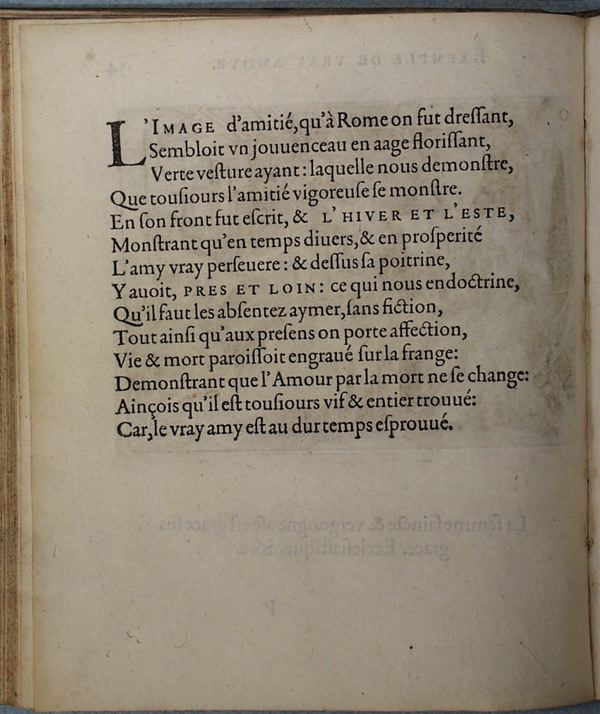 L'IMAGE d'amitié, qu'à Rome on fut dreſſant,
Sembloit vn jouuenceau en aage floriſſant,
Verte veſture ayant : laquelle nous demonſtre,
Que touſiours l'amitié vigoreuſe ſe monſtre.
En ſon front fut eſcrit, & L'HIVER ET L'ESTE,
Monſtrant qu'en temps diuers, & en proſperité
L'amy vray perſeuere : & deſſus ſa poitrine,
Y auoit, PRES ET LOIN : ce qui nous endoctrine,
Qu'il faut les abſentez aymer, ſans fiction,
Tout ainſi qu'aux preſens on porte affection,
Vie & mort paroiſſoit engraué ſur la frange:
Demonſtrant que l'Amour par la mort ne ſe change:
Ainçois qu'il eſt touſiours vif & entier trouué:
Car, le vray amy eſt au dur temps eſprouué.